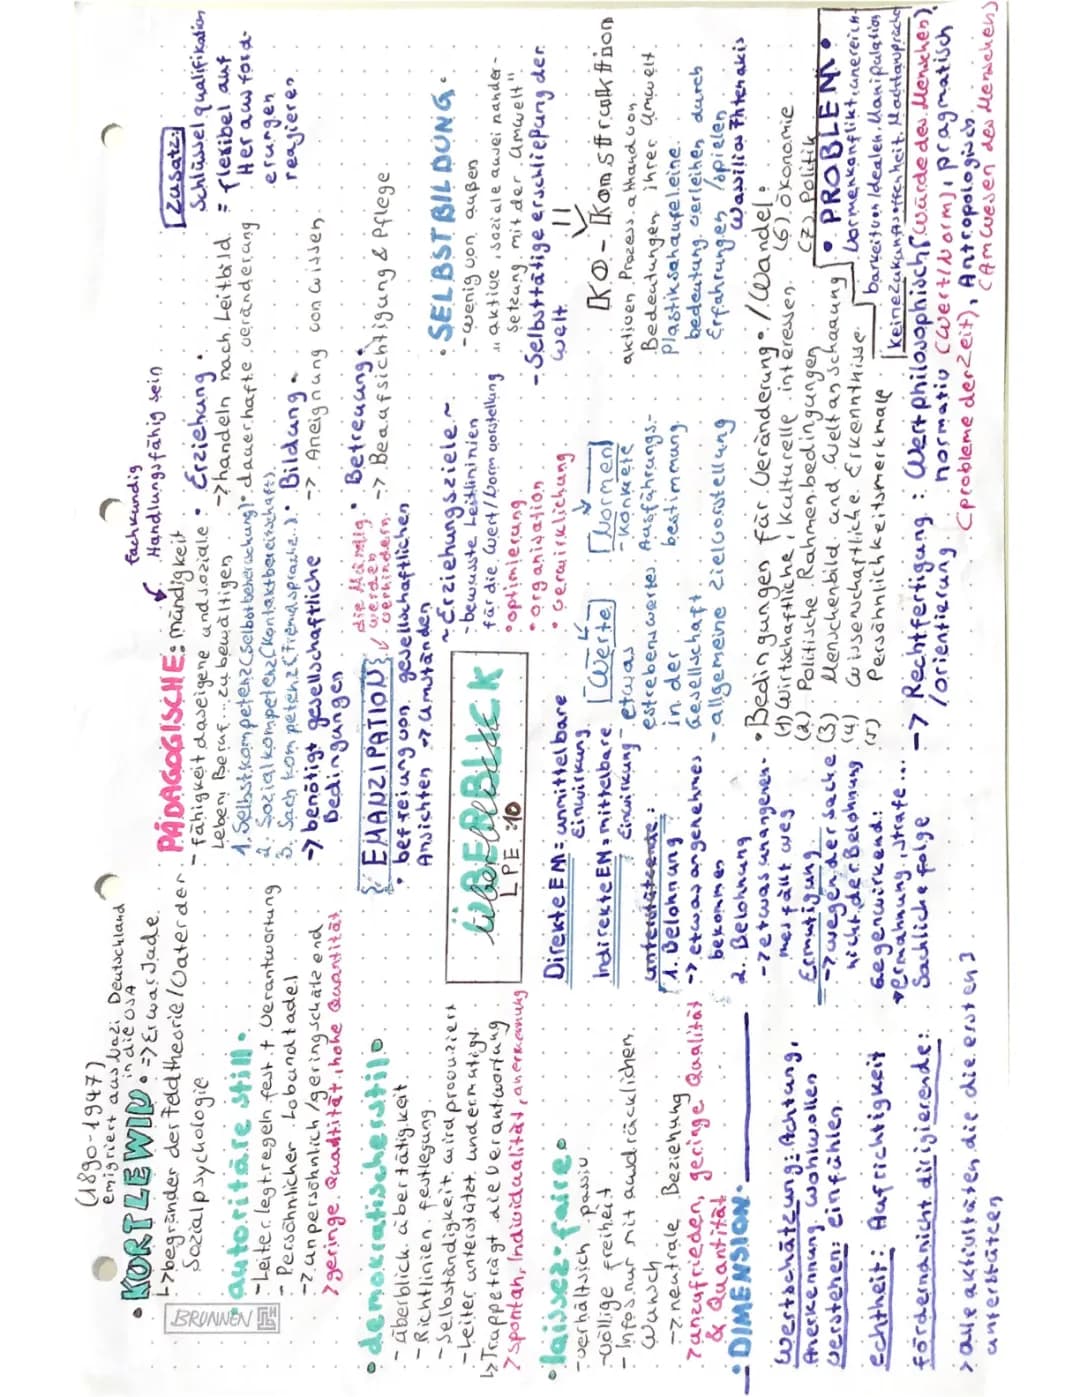 (1890-1947)
emigriert aus Nazi Deutschland
in die USA
• KURT LEWIN • => Er war Jude
↳ begründer der Feldtheorie/Vater der
Sozialpsychologie
BRUNNEN
• autoritäre still •
- Leiter legt regeln fest + Verantwortung
- Persöhnlicher Lob und tadel
-> unpersöhnlich/geringschätzend
> geringe Qualität, hohe Quantität
• demokratischerstil •
- überblick über tätigkeit
- Richtlinien festlegung
- Selbständigkeit wird produziert
- Leiter unterstützt und ermutigt
↳ Truppe trägt die Verantwortung
> spontan, Individualität, anerkennung
• laisez-faire •
- verhältsich passiv
- völlige freiheit
- Infos nur mit ausdrücklichen
Wunsch
-> neutrale Beziehung
> unzufrieden, geringe Qualität
& Quantität
• DIMENSION •
Wertschätzung: Achtung,
Anerkennung, wohlwollen
Verstehen: einfühlen
Echtheit: Aufrichtigkeit
fördernd nicht dirigierende:
> alle aktivitäten, die die ersten 3
unterstützen
PÄDAGOGISCHE: mündigkeit
Fachkundig
Handlungsfähig sein
- fähigkeit das eigene und soziale
Leben, Beruf... zu bewältigen
1. Selbstkompetenz (Selbstbeherschung)
2. Sozialkompetenz (Kontaktbereitschaft)
3. Sachkompetenz (Fremdsprache)
-> benötigt gesellschaftliche
Bedingungen
EMANZIPATION
die Mündig
werden
verhindern
• befreiung von gesellschaftlichen
Ansichten -> umständen
ÜBERBLICK
überblick
LPE :10
Direkte EM = unmittelbare
Einwirkung
Indirekte EM = mittelbare
Einwirkung
unterstützende:
1. Belohnung
-> etwas angenehmes
bekommen
2. Belohnung
-> etwas unangeneh-
mes fällt weg
Ermutigung
-> wegen der sache
nicht der Belohnung
Gegenwirkend:
Ermahnung, Strafe....
Sachliche folge
Zusatz:
Schlüsselqualifikation
= flexibel auf
Herausford-
erungen
reagieren
• Erziehung •
-> handeln nach Leitbild
• dauerhafte veränderung
• Bildung •
-> Aneignung von wissen
• Betreuung •
-> Beaufsichtigung & Pflege
~ Erziehungsziele ~
- bewusste Leitlininien
für die Wert/Normvorstellung
• optimierung
• organisation
• verwirklichung
Werte
- etwas
estrebenswertes
in der
Gesellschaft
- allgemeine Zielvorstellung
Normen
- Konkrete
Ausführungs-
bestimmung
• SELBSTBILDUNG •
- wenig von außen
" aktive, soziale auseinander-
setzung mit der umwelt"
- Selbsttätige erschließung der
Welt
KO-Konstruktion
aktiven Prozess anhand von
Bedeutungen ihrer umwelt
Plastikschaufel eine
bedeutung verleihen durch
Erfahrungen/spielen
Wassilios Fthenakis
• Bedingungen für Veränderung •/Wandel:
(1) Wirtschaftliche, Kulturelle interessen
(2) Politische Rahmenbedingungen
(3) Menschenbild und Weltanschauung
(4) Wissenschaftliche Erkenntnisse
(5) Persöhnlichkeitsmerkmale
(6) Ökonomie
(7) Politik
• PROBLEM •
Normenkonflikt, unereich-
barkeit von Idealen, Manipulation
keine zukunftsoffenheit, Machtansprüche
-> Rechtfertigung : Wertphilosophisch (Würde des Menschen),
/orientierung normativ (Wert/Norm), pragmatisch
(probleme der Zeit), Antropologisch
(Am Wesen des Menschen)